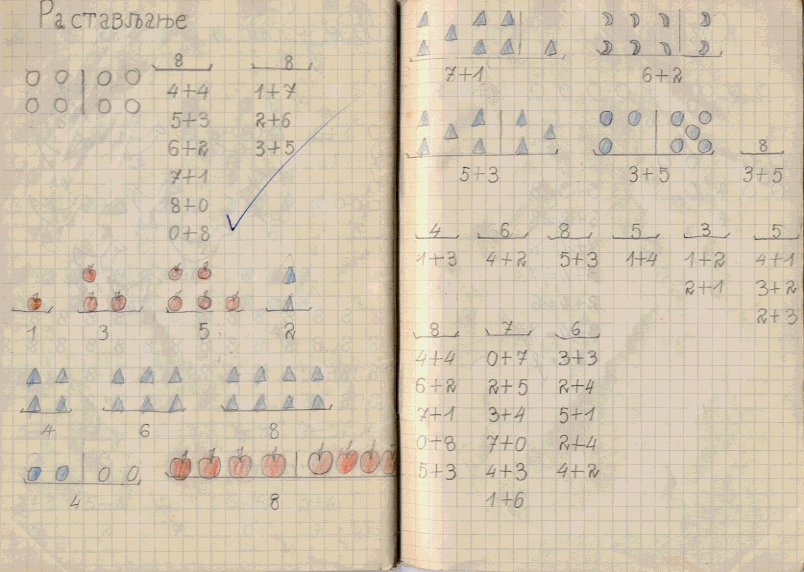 Растављање
8 8
4+4 1+7
5+3 2+6
6+2 3+5
7+1
8+0
0+8
1 3 5 2
4 6 8
4 8
7+1 6+2
8
5+3 3+5 3+5
4 6 8 5 3 5
1+3 4+2 5+3 1+4 1+2 4+1
2+1 3+2
2+3
8 7 6
4+4 0+7 3+3
6+2 2+5 2+4
7+1 3+4 5+1
0+8 7+0 2+4
5+3 4+3 4+2
1+6